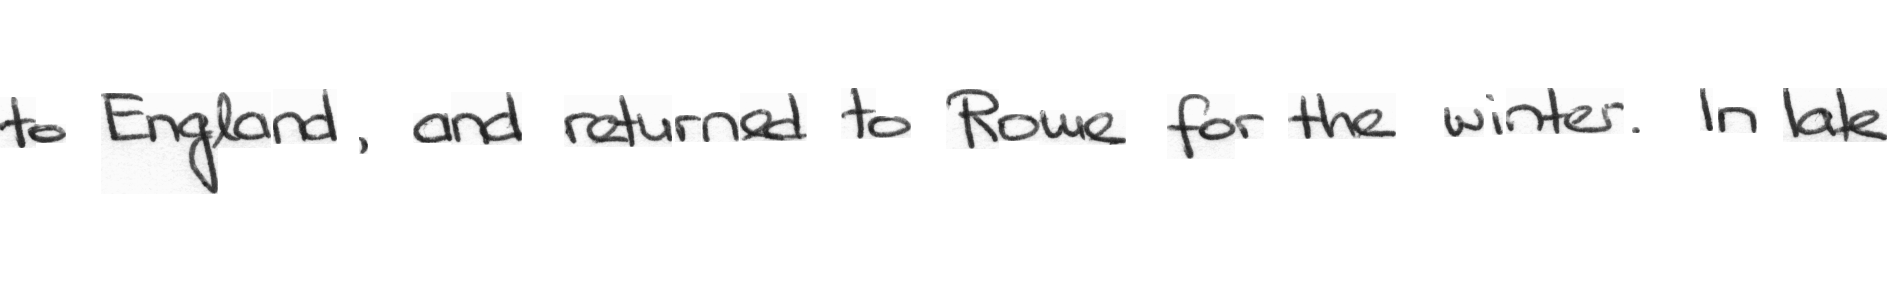 to England, and returned to Rome for the winter. In late